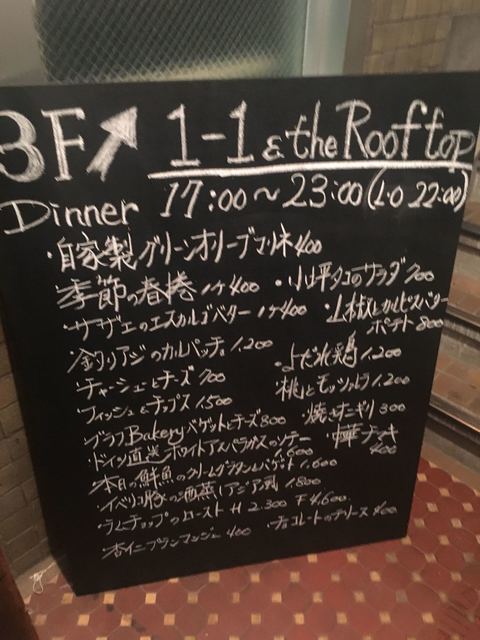 3F 1-1 & the Rooftop
Dinner 17:00~23:00 (L.O 22:00)
・自家製グリーンオリーブマリネ 400
季節の春捲 1ケ400
・小坪タコのサラダ 700
・サザエのエスカルゴバター 1ケ400
・山椒とカルピスバター
ポテト 800
・釣りアジのカルパッチョ 1,200
・よだれ鶏 1,200
チャーシューとチーズ 700
・桃とモッツァレラ 1,200
フィッシュとチップス 1,500
・焼きオニギリ 300
・プラフBakeryバゲットとチーズ 800
400
・ドイツ直送ホワイトアスパラガスのソテー
1,600
・本日の鮮魚のクリームグラタンとバゲット 1,600
・イベリコ豚の酒蒸しアジア風 1,800
・ラムチョップのロースト H 2,300 F 4,600
・チョコレートのテリーヌ 400
・杏仁ブランマンジェ 400